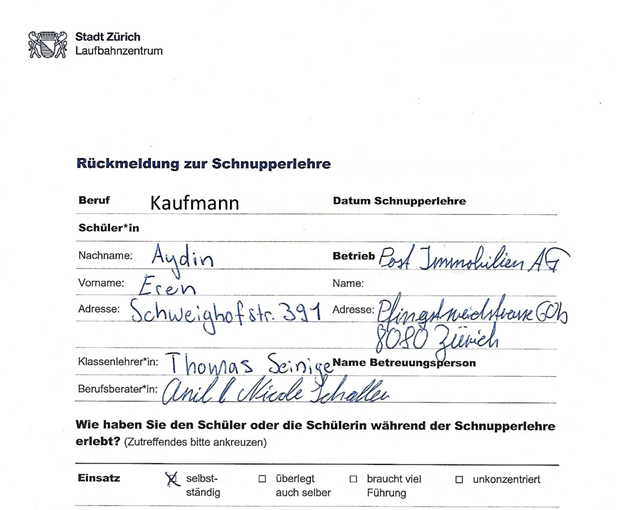 Stadt Zürich
Laufbahnzentrum
Rückmeldung zur Schnupperlehre
Beruf Kaufmann Datum Schnupperlehre
Schüler*in
Nachname: Aydin Betrieb Post Immobilien AG
Vorname: Eren Name:
Adresse: Schweighofstr. 391 Adresse: Pfingstweidstrasse 60b
8080 Zürich
Klassenlehrer*in: Thomas Seinige Name Betreuungsperson
Berufsberater*in: Anil & Nicole Schaller
Wie haben Sie den Schüler oder die Schülerin während der Schnupperlehre
erlebt? (Zutreffendes bitte ankreuzen)
Einsatz ☒ selbst- ☐ überlegt ☐ braucht viel ☐ unkonzentriert
ständig auch selber Führung